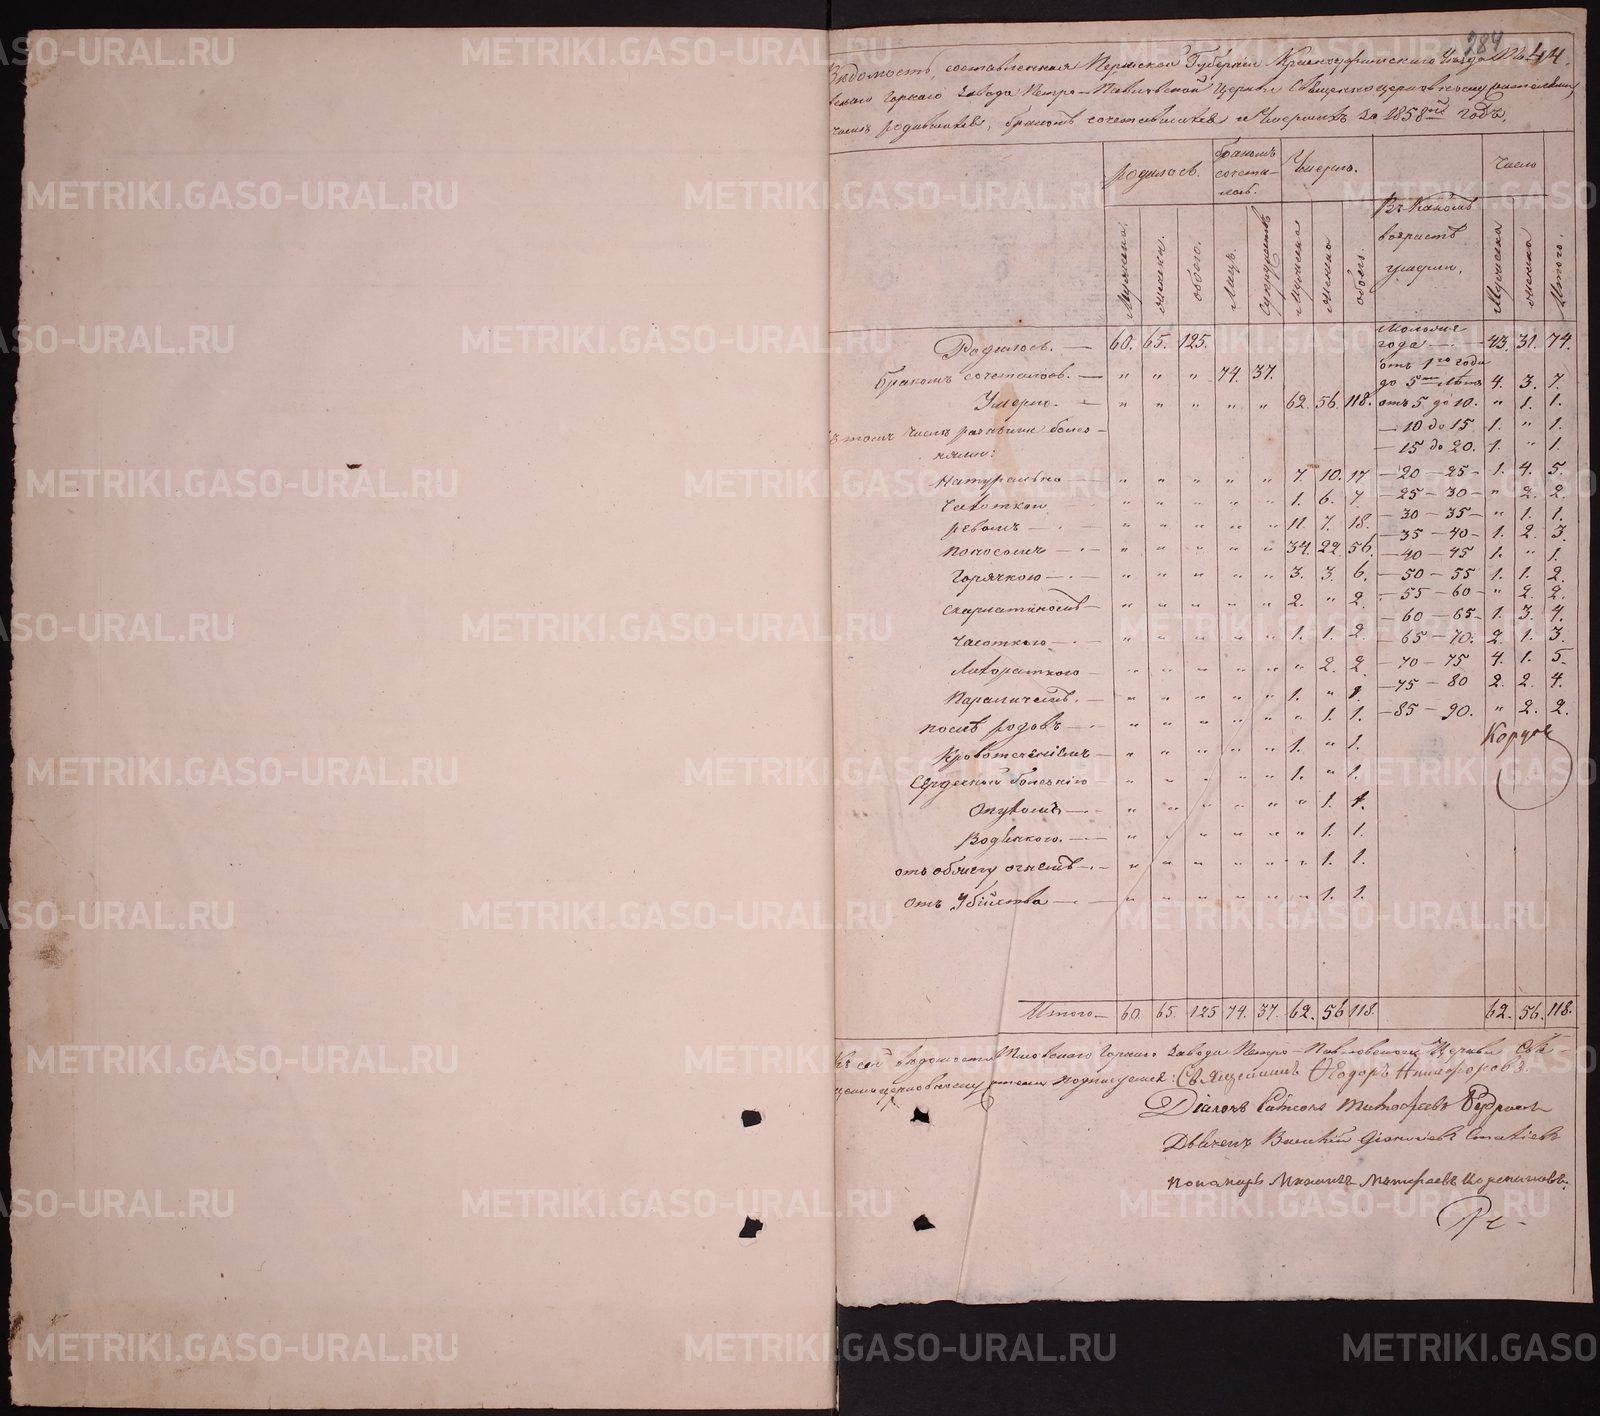 284
Ведомость, составленная Пермской Губернии Красноуфимскаго Уѣзда
Горнаго завода Петро-Павловской Церкви Священноцерковнослужителями,
числѣ родившихся, бракомъ сочетавшихся и Умершихъ за 1858й годъ.
родилось. бракомъ сочеталось. Умерло. Въ какомъ возрастѣ умерли. Число
Мужска. женска. обоего. Лицъ. Супружествъ мужска женска обоего. Мужска женска Итого.
Родилось. — 60. 65. 125. Моложе года — 43. 31. 74.
бракомъ сочеталось. — " " " 74. 37. отъ 1го года до 5ти лѣтъ 4. 3. 7.
Умерло. — " " " " " 62. 56. 118. отъ 5 до 10. " 1. 1.
въ томъ числѣ разными болез- — 10 до 15 1. " 1.
нями: — 15 до 20. 1. " 1.
Натурально " " " " " 7. 10. 17 — 20 — 25 — 1. 4. 5.
" " " " " 1. 6. 7 — 25 — 30 — " 2. 2.
— 30 — 35 — " 1. 1.
ревомъ — " " " " " 11. 7. 18. — 35 — 40 — 1. 2. 3.
Поносомъ — " " " " " 34. 22. 56. — 40 — 45 1. " 1.
Горячкою — " " " " " 3. 3. 6. — 50 — 55 1. 1. 2.
— 55 — 60 — " 2. 2.
скарлатиною — " " " " " 2. " 2. — 60 — 65 — 1. 3. 4.
Чахоткою — " " " " " 1. 1. 2. — 65 — 70. 2. 1. 3.
Лихорадкою " " " " " " 2. 2 — 70 — 75 4. 1. 5.
— 75 — 80 2. 2. 4.
Параличемъ. " " " " " 1. " 1. — 85 — 90. " 2. 2.
послѣ родовъ — " " " " " " 1. 1.
Кровотеченіемъ — " " " " " 1. " 1.
Сердечной болезнію — " " " " " 1. " 1.
Опухолью — " " " " " " 1. 1.
Водянкою. — " " " " " " 1. 1.
отъ обжегу огнемъ — " " " " " " 1. 1.
отъ Убійства — " " " " " " 1. 1.
Итого — 60. 65. 125 74. 37. 62. 56 118. 62. 56. 118.
Къ сей вѣдомости Горнаго завода Петро-Павловской Церкви Свя
щенноцерковнослужители подписуемся: Священникъ Ѳеодоръ Никифоровъ
Діаконъ
Дьячекъ Василій
пономарь
METRIKI.GASO-URAL.RU